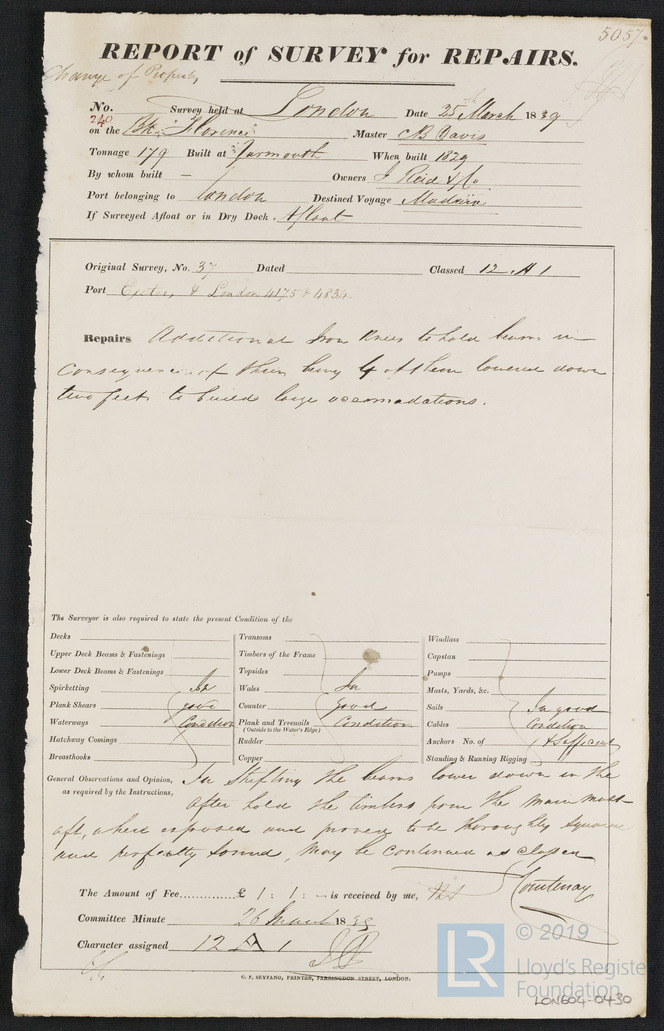 5057.
REPORT of SURVEY for REPAIRS.
Change of Property
No. 240 Survey held at London Date 25th March 1839
on the Bk. "Florence" Master C B Davis
Tonnage 179 Built at Yarmouth When built 1829
By whom built — Owners J Reid & Co
Port belonging to London Destined Voyage Madeira
If Surveyed Afloat or in Dry Dock. Afloat
Original Survey, No. 37 Dated Classed 12 A 1
Port & London 4175 & 4834.
Repairs Additional Iron Knees to hold beams in
consequence of them being 4 of them lowered down
two feet to build large accomodations.
The Surveyor is also required to state the present Condition of the
Decks
Upper Deck Beams & Fastenings
Lower Deck Beams & Fastenings
Spirketting In
Plank Shears good
Waterways Condition
Hatchway Comings
Breasthooks
Transoms
Timbers of the Frame
Topsides
Wales In
Counter good
Plank and Treenails Condition
(Outside to the Water's Edge)
Rudder
Copper
Windlass
Capstan
Pumps
Masts, Yards, &c.
Sails In good
Cables Condition
Anchors No. of & Sufficient
Standing & Running Rigging
General Observations and Opinion, In Shifting the beams lower down in the
as required by the Instructions, after hold the timbers from the main mast
aft, where exposed and proved to be thoroughly square
and perfectly sound, may be continued as classed
The Amount of Fee.............. £ 1 : 1 : — is received by me, Courtenay
Committee Minute 26 March 1839
Character assigned 12 A 1
C. F. SEYFANG, PRINTER, FARRINGDON STREET, LONDON.
LR
© 2019
Lloyd's Register
Foundation
LON604-0430